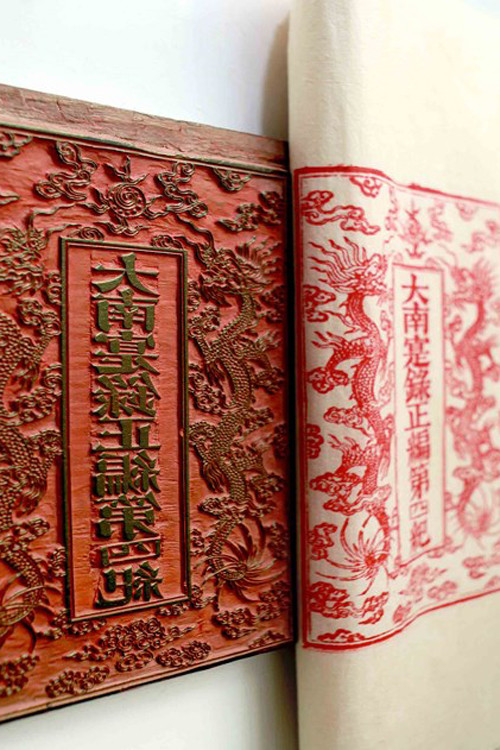 大南寔錄正編第四紀
大南寔錄正編第四紀